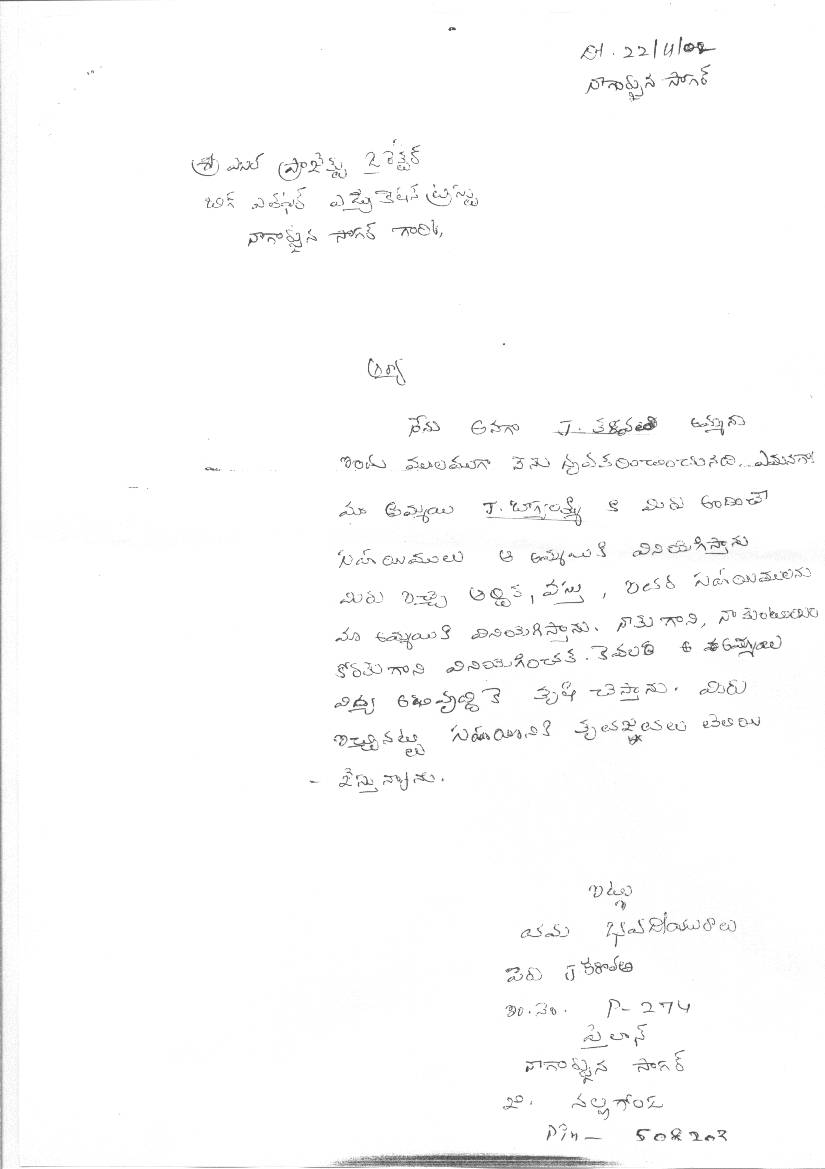 Dt. 22/4/02
నాగార్జున సాగర్
శ్రీ ప్రాజెక్టు డైరెక్టర్
ఎడ్యుకేషన్ ట్రస్టు
నాగార్జున సాగర్ గారికి,
ఆర్యా
నేను అనగా J. అమ్మను
ఇందు మూలముగా నేను ఏమనగా
మా అమ్మాయి J. కి మిరు అందించే
సహయములు ఆ అమ్మాయికి వినియెగిస్తాను
మిరు ఇచ్చే ఆర్థిక, వస్తు, ఇతర సహయములను
మా అమ్మాయికి వినియెగిస్తాను. నాకు గాని, నా కుటుంబం
కొరకు గాని వినియెగించక. కెవలం ఆ అమ్మాయి
విద్య అభివృద్ధి కె కృషి చెస్తాను. మిరు
ఇచ్చినట్టు సహాయానికి కృతజ్ఞతలు తెలియ
- జేస్తున్నాను.
ఇట్లు
తమ భవదీయురాలు
పెరు J
ఇం.నెం. P-274
పైలాన్
నాగార్జున సాగర్
జి. నల్లగొండ
Pin - 508203